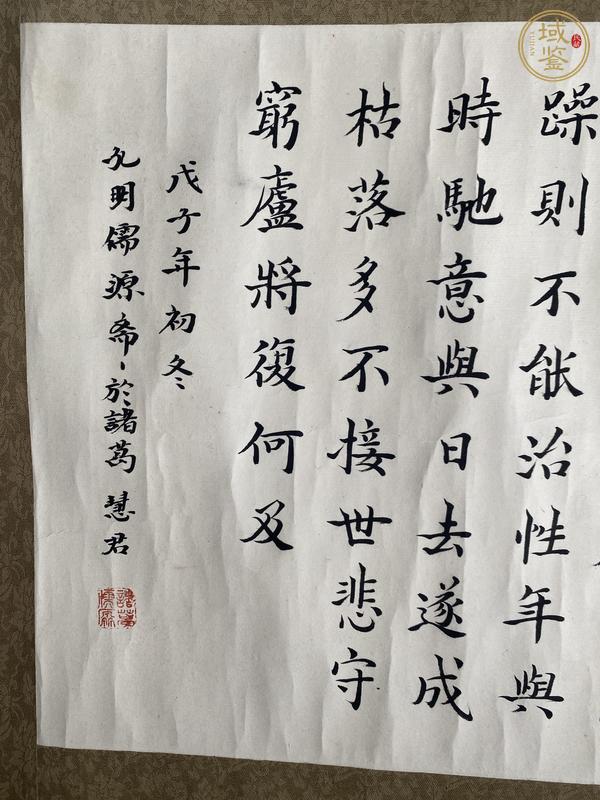 躁則不能治性年與
時馳意與日去遂成
枯落多不接世悲守
窮廬將復何及
戊子年初冬
孔明儒源斋、於諸葛慧君
域鉴